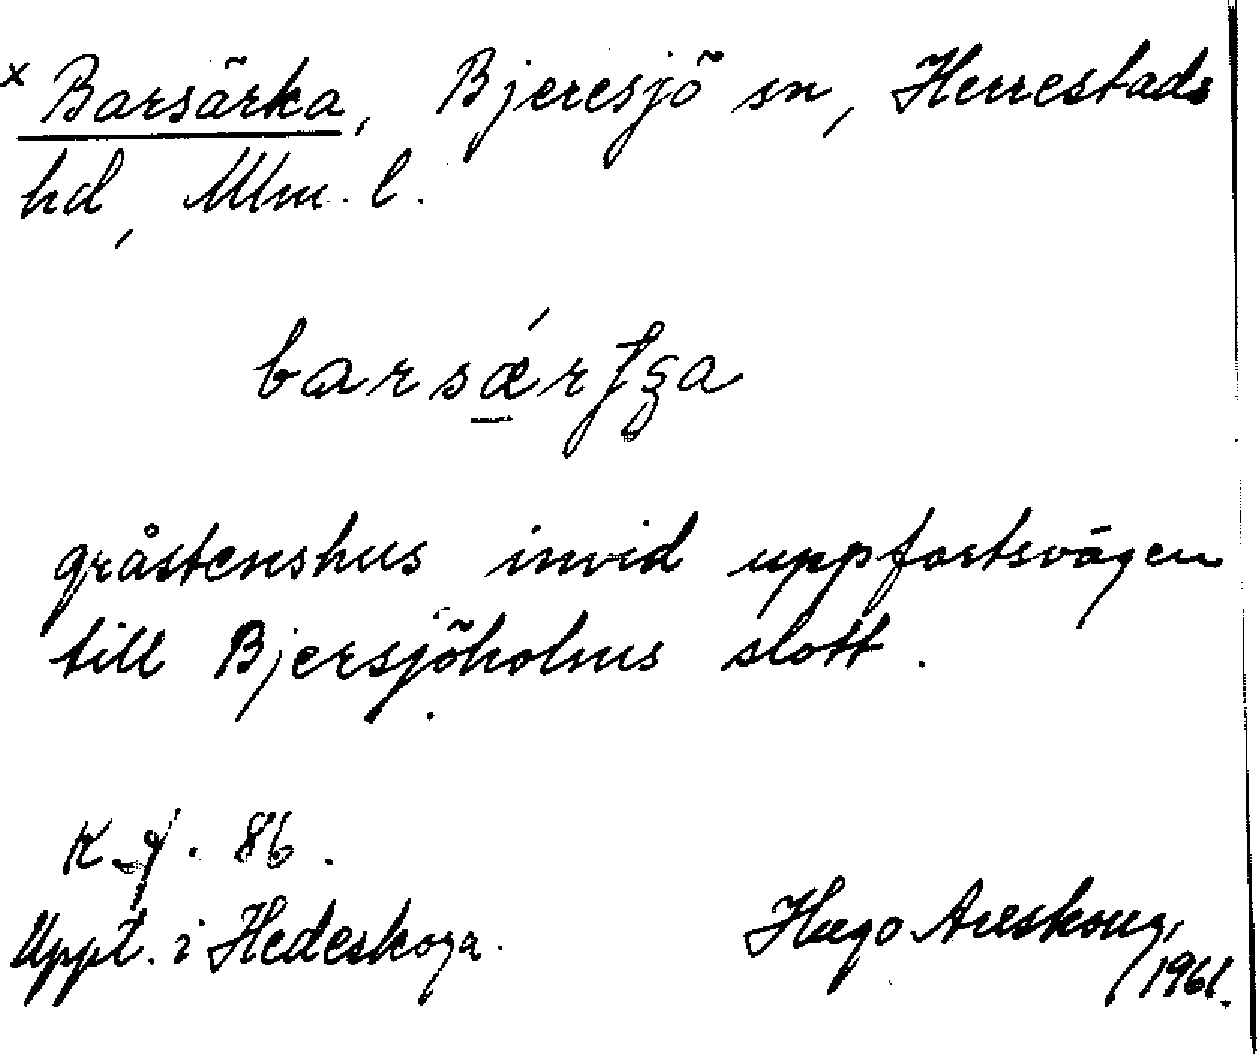 x Barsärka, Bjeresjö sn, Herrestads
hd, Mlm. l.
gråstenshus invid uppfartsvägen
till Bjersjöholms slott.
K. J. 86.
Uppt. i Hedeskoga.
Hugo Areskoug,
1961.